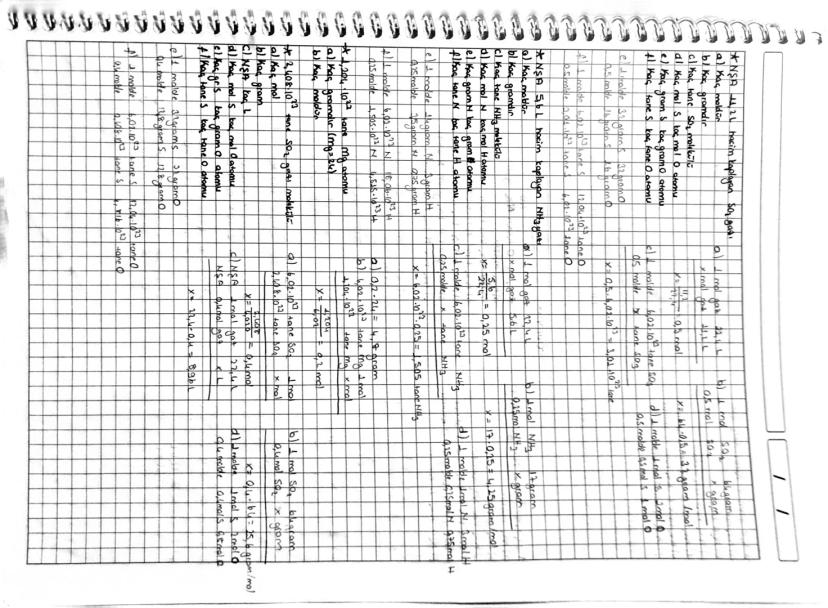 * NŞA 11,2 L hacim kaplayan SO₂ gazı
a) Kaç moldür
b) Kaç gramdır
c) Kaç tane SO₂ molekülü
d) Kaç mol S kaç mol O atomu
e) Kaç gram S kaç gram O atomu
f) Kaç tane S kaç tane O atomu
a) 1 mol gaz 22,4 L
x mol gaz 11,2 L
x = 11,2 / 22,4 = 0,5 mol
b) 1 mol SO₂ 64 gram
0,5 mol SO₂ x gram
x = 64.0,5 = 32 gram/mol
c) 1 molde 6,02.10²³ tane SO₂
0,5 molde x tane SO₂
x = 0,5.6,02.10²³ = 3,01.10²³ tane
d) 1 molde 1 mol S 2 mol O
0,5 molde 0,5 mol S 1 mol O
e) 1 molde 32 gram S 32 gram O
0,5 molde 16 gram S 16 gram O
f) 1 molde 6,02.10²³ tane S 12,04.10²³ tane O
0,5 molde 3,01.10²³ tane S 6,02.10²³ tane O
* NŞA 5,6 L hacim kaplayan NH₃ gazı
a) Kaç moldür
b) Kaç gramdır
c) Kaç tane NH₃ molekülü
d) Kaç mol N kaç mol H atomu
e) Kaç gram N kaç gram H atomu
f) Kaç tane N kaç tane H atomu
a) 1 mol gaz 22,4 L
x mol gaz 5,6 L
x = 5,6 / 22,4 = 0,25 mol
b) 1 mol NH₃ 17 gram
0,25 mol NH₃ x gram
x = 17.0,25 = 4,25 gram/mol
c) 1 molde 6,02.10²³ tane NH₃
0,25 molde x tane NH₃
x = 6,02.10²³.0,25 = 1,505 tane NH₃
d) 1 molde 1 mol N 3 mol H
0,25 molde 0,25 mol N 0,75 mol H
e) 1 molde 14 gram N 3 gram H
0,25 molde gram N 0,75 gram H
f) 1 molde 6,02.10²³ N 18,06.10²³ H
0,25 molde 1,505.10²³ N 4,515.10²³ H
* 1,204.10²³ tane Mg atomu
a) Kaç gramdır (Mg=24)
b) Kaç moldür
a) 0,2.24 = 4,8 gram
b) 6,02.10²³ tane Mg 1 mol
1,204.10²³ tane Mg x mol
x = 1,204 / 6,02 = 0,2 mol
* 2,408.10²³ tane SO₂ gazı molekülü
a) Kaç mol
b) Kaç gram
c) NŞA kaç L
d) Kaç mol S kaç mol O atomu
e) Kaç gr S kaç gram O atomu
f) Kaç tane S kaç tane O atomu
a) 6,02.10²³ tane SO₂ 1 mol
2,408.10²³ tane SO₂ x mol
x = 2,408 / 6,02 = 0,4 mol
b) 1 mol SO₂ 64 gram
0,4 mol SO₂ x gram
x = 0,4.64 = 25,6 gram/mol
c) NŞA 1 mol gaz 22,4 L
NŞA 0,4 mol gaz x L
x = 22,4.0,4 = 8,96 L
d) 1 molde 1 mol S 2 mol O
0,4 molde 0,4 mol S mol O
e) 1 molde 32 gram S 32 gram O
0,4 molde 12,8 gram S 12,8 gram O
f) 1 molde 6,02.10²³ tane S 12,04.10²³ tane O
0,4 molde 2,408.10²³ tane S 4,816.10²³ tane O